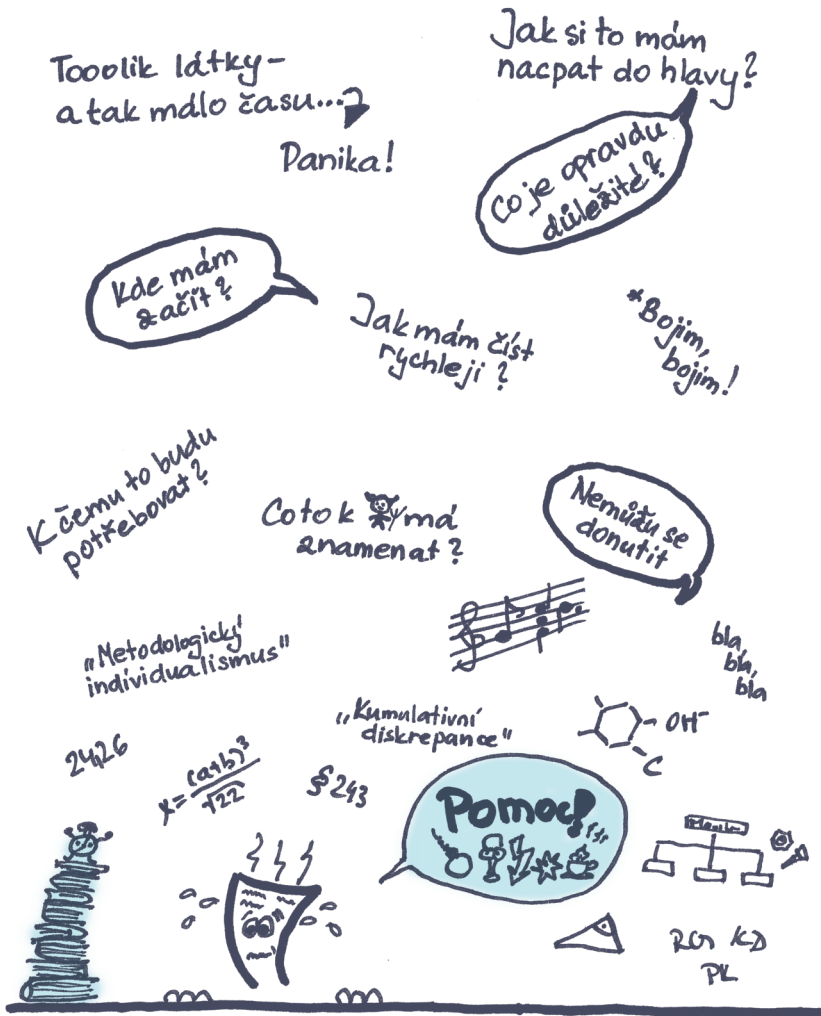 Tooolik látky–
a tak málo času...
Panika!
Jak si to mám
nacpat do hlavy?
Co je opravdu
důležité?
Kde mám
začít?
Jak mám číst
rychleji?
*Bojim,
bojim!
K čemu to budu
potřebovat?
Co to k má
znamenat?
Nemůžu se
donutit
„Metodologický
individualismus"
bla,
bla,
bla
„Kumulativní
diskrepance"
OH⁻
C
24,26
x = (a+b)³
√22
§ 243
Pomoc!